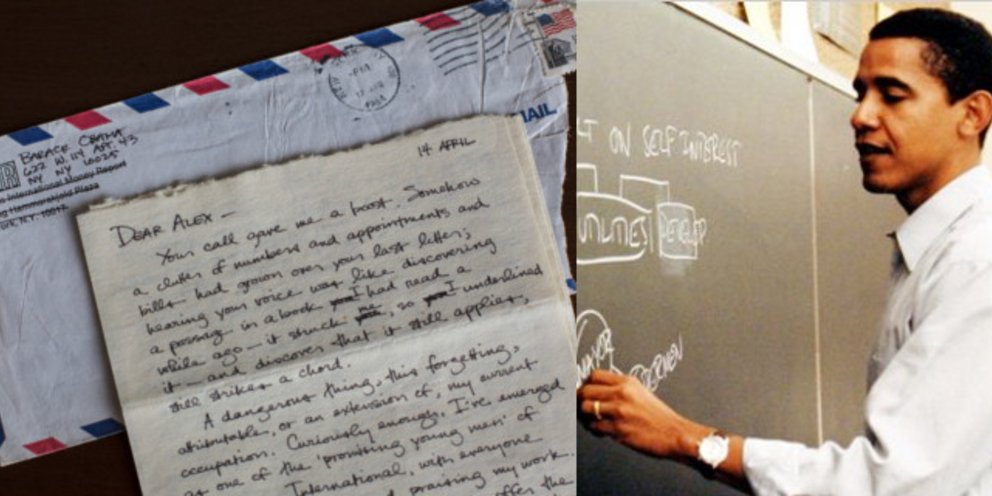 BARACK OBAMA
622 W. 114 APT. 43
NY NY 10025
International Money Report
Hammarskjold Plaza
MAIL
14 APRIL
DEAR ALEX —
Your call gave me a boost. Somehow
a clutter of numbers and appointments and
bills had grown over your last letter;
hearing your voice was like discovering
a passage in a book I had read a
while ago — it struck me, so I underlined
it — and discover that it still applies,
still strikes a chord.
A dangerous thing, this forgetting,
attributable, or an extension of, my current
occupation. Curiously enough, I've emerged
as one of the 'promising young men' of
International, with everyone
praising my work.
offer the
ON SELF INTEREST
UTILITIES
MAYOR